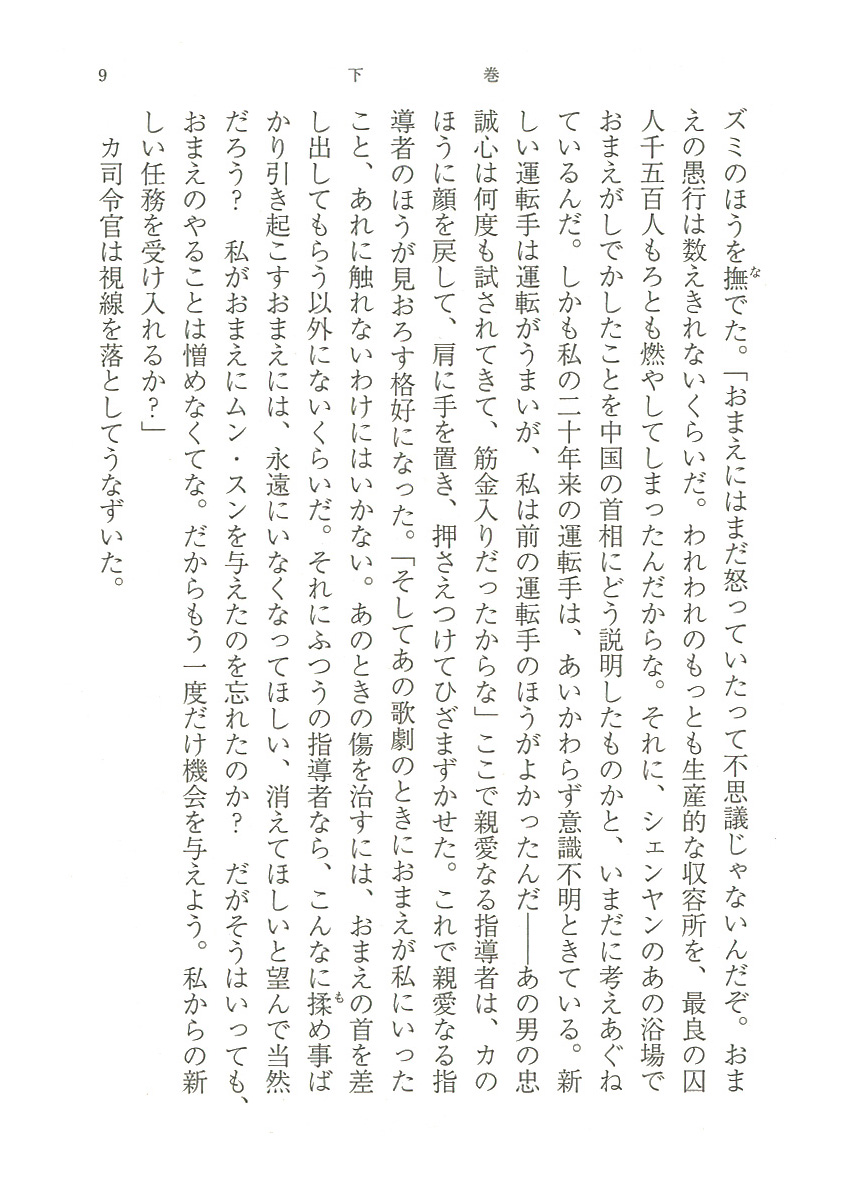 9
下巻
ズミのほうを撫でた。「おまえにはまだ怒っていたって不思議じゃないんだぞ。おま
えの愚行は数えきれないくらいだ。われわれのもっとも生産的な収容所を、最良の囚
人千五百人もろとも燃やしてしまったんだからな。それに、シェンヤンのあの浴場で
おまえがしでかしたことを中国の首相にどう説明したものかと、いまだに考えあぐね
ているんだ。しかも私の二十年来の運転手は、あいかわらず意識不明ときている。新
しい運転手は運転がうまいが、私は前の運転手のほうがよかったんだ――あの男の忠
誠心は何度も試されてきて、筋金入りだったからな」ここで親愛なる指導者は、カの
ほうに顔を戻して、肩に手を置き、押さえつけてひざまずかせた。これで親愛なる指
導者のほうが見おろす格好になった。「そしてあの歌劇のときにおまえが私にいった
こと、あれに触れないわけにはいかない。あのときの傷を治すには、おまえの首を差
し出してもらう以外にないくらいだ。それにふつうの指導者なら、こんなに揉め事ば
かり引き起こすおまえには、永遠にいなくなってほしい、消えてほしいと望んで当然
だろう？　私がおまえにムン・スンを与えたのを忘れたのか？　だがそうはいっても、
おまえのやることは憎めなくてな。だからもう一度だけ機会を与えよう。私からの新
しい任務を受け入れるか？」
　カ司令官は視線を落としてうなずいた。
な
も